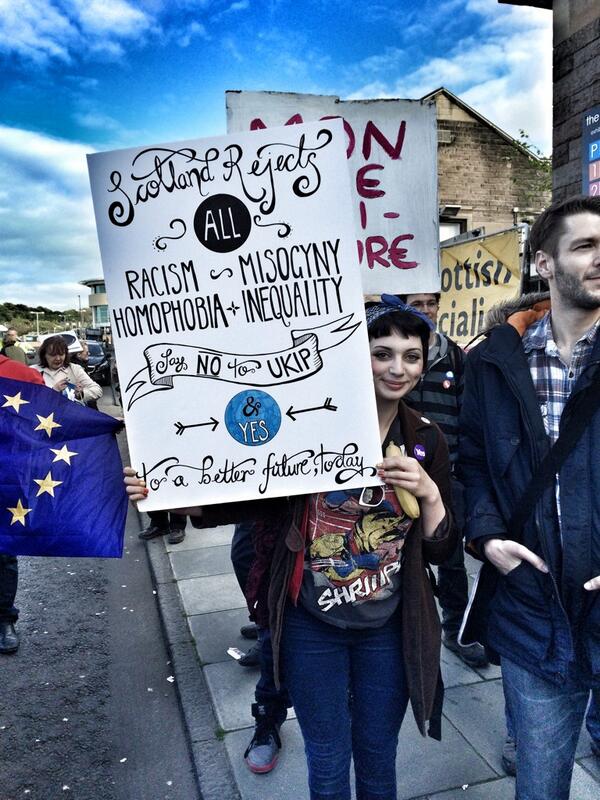 Scotland Rejects
ALL
RACISM ~ MISOGYNY
HOMOPHOBIA + INEQUALITY
Say NO to UKIP
&
YES
for a better future, today
SHRIMP
Yes
the
P
1
2